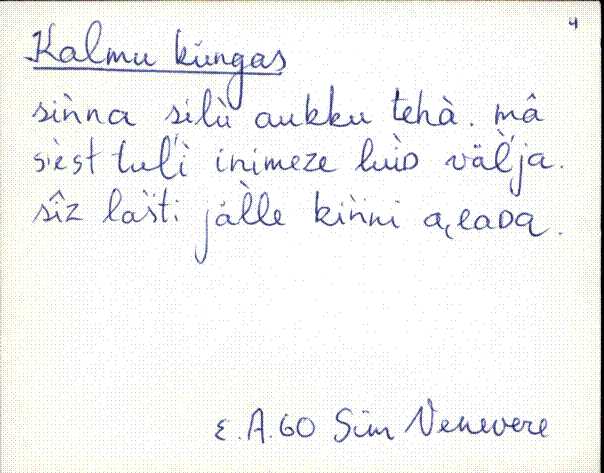 4
Kalmu küngas
siǹna śilù aukku tehà. mâ
śièst tuĺĺi inimeze luìᴅ väĺĺja.
sîz laśti jälle kińni aeaᴅa.
E.A.60 Sim Venevere